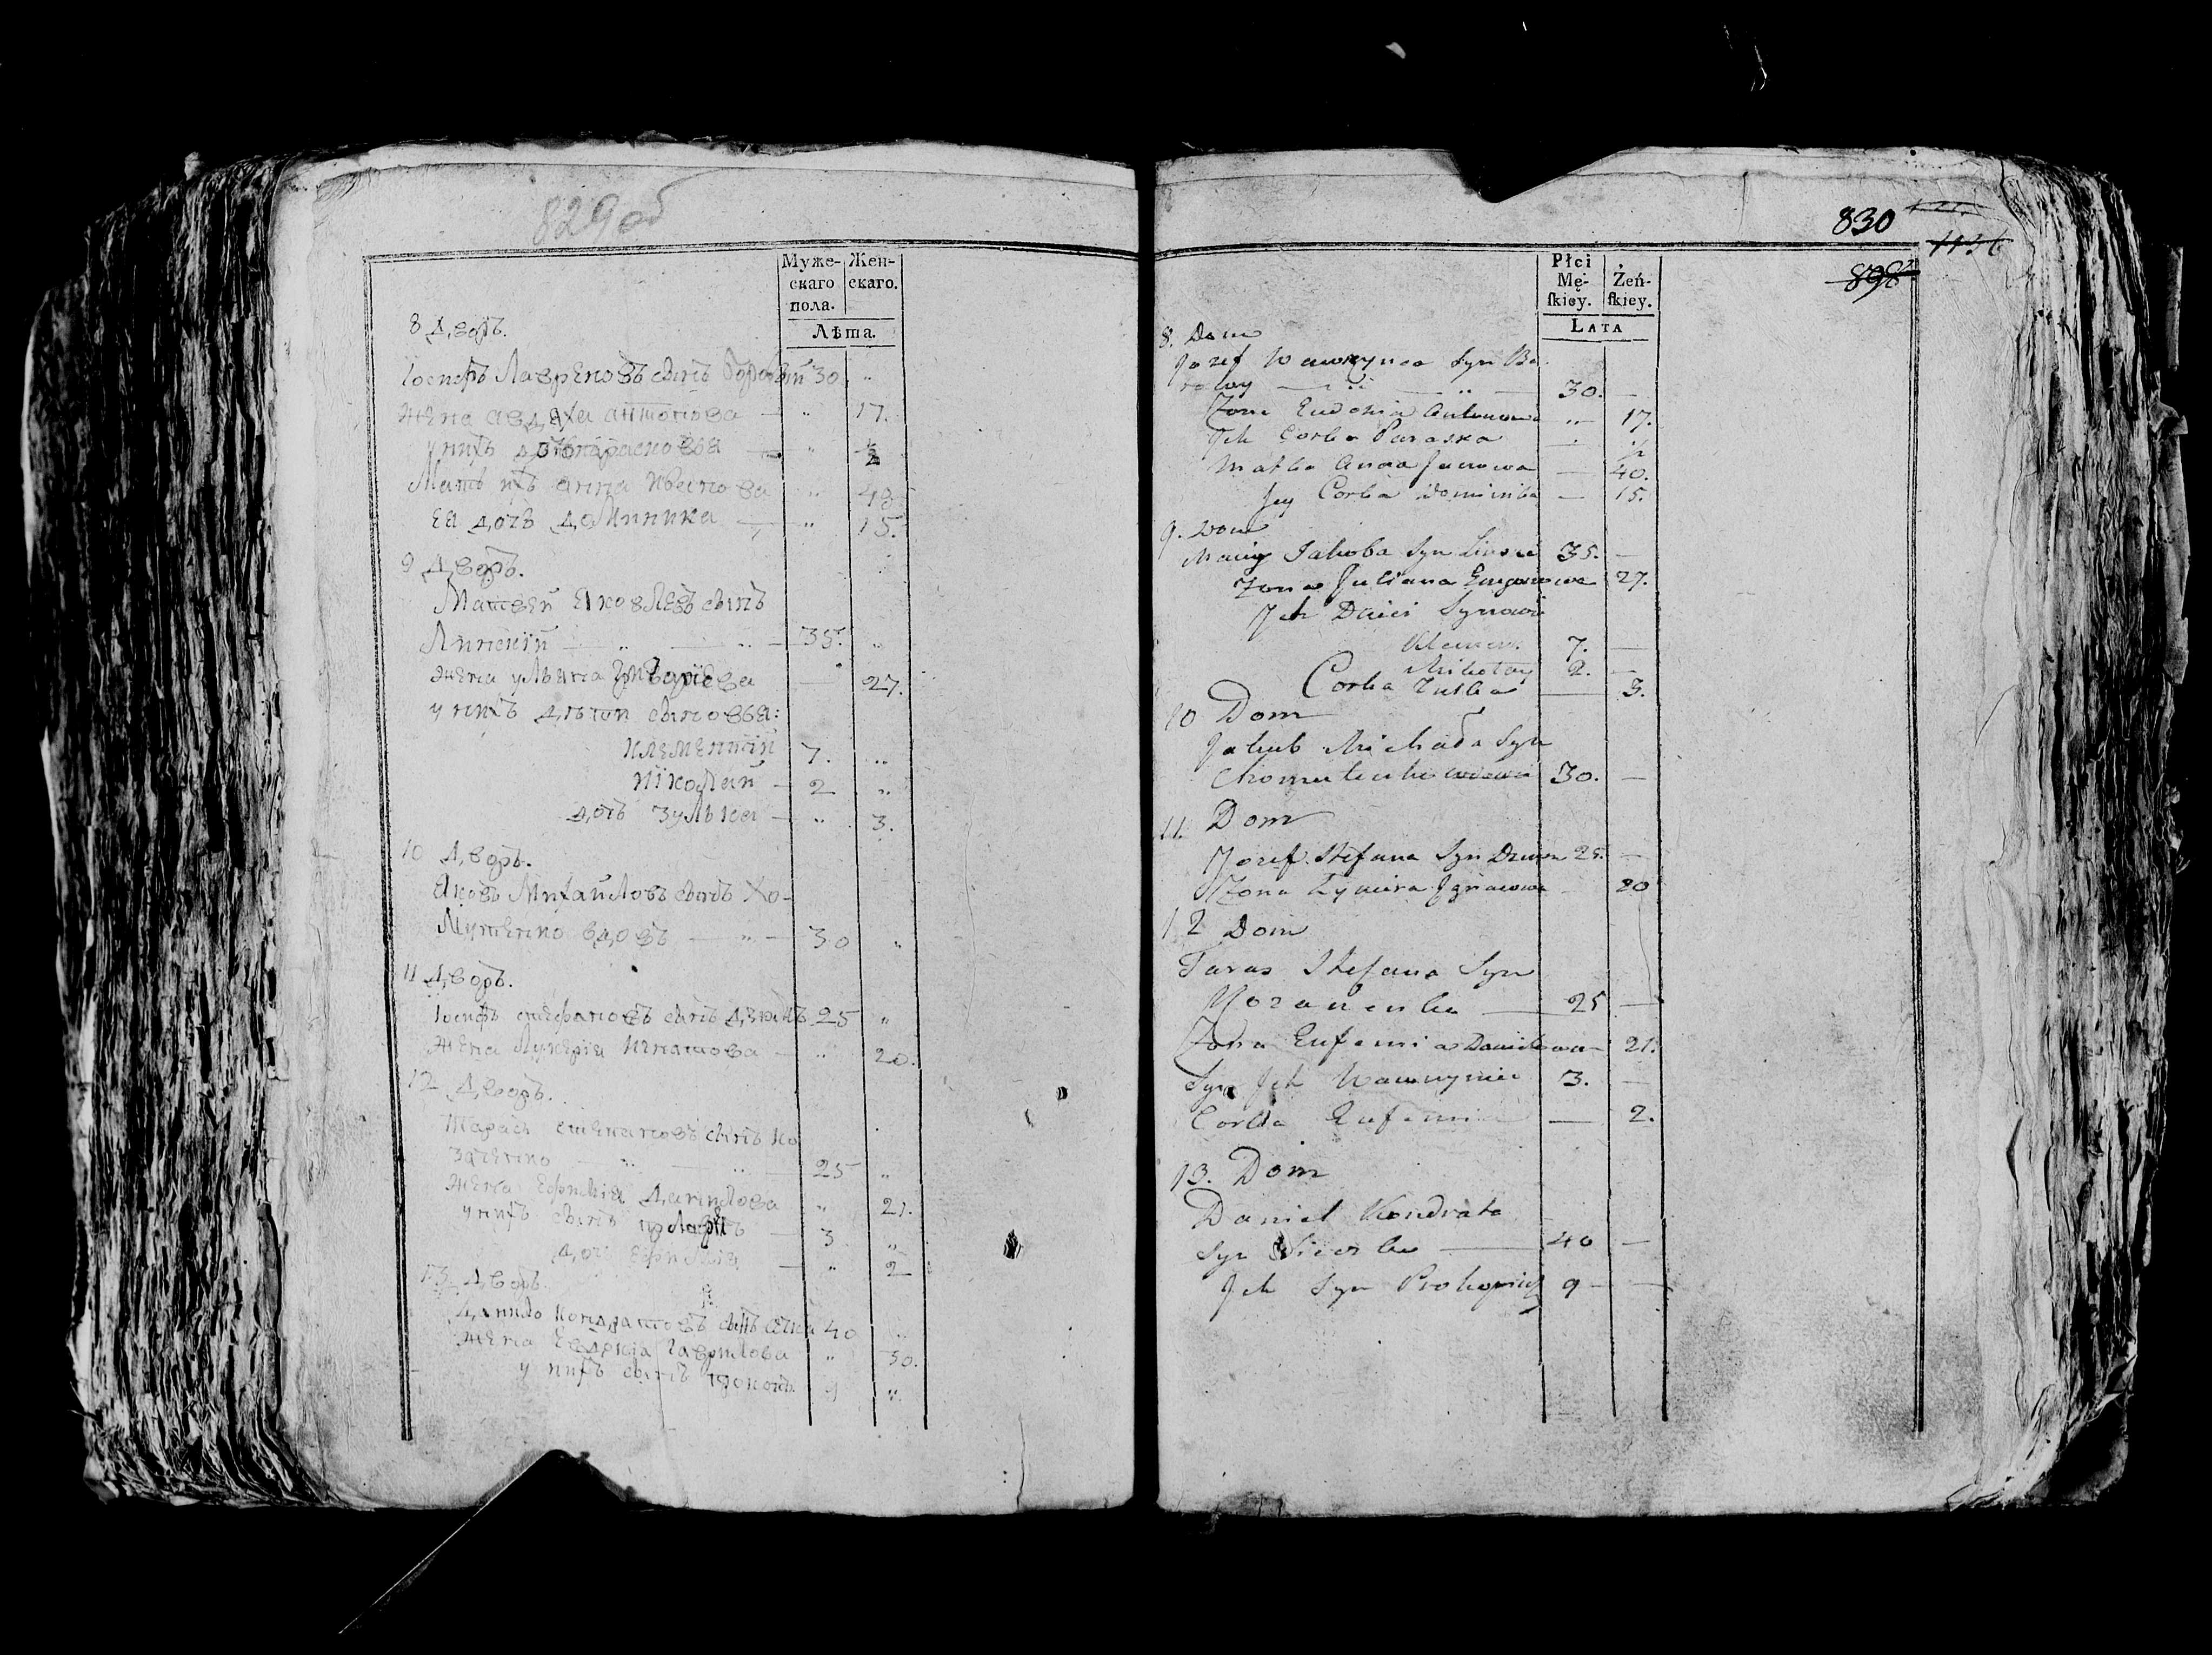 829 об
Муже-
скаго
пола.
Жен-
скаго.
Лѣта.
8 дворъ.
Іосифъ Лавреновъ сынъ Боровый 30. „
жена Авдоха Антонова — „ 17.
у нихъ дочь Парасковія — „ ½
Мать ихъ Анна Иванова „ 40.
ея дочь Доминика — „ 15.
9 дворъ.
Матвей Яковлевъ сынъ
Линскій — „ — „ — 35. „
жена Ульяна Григориева — 27.
у нихъ дѣти сыновья:
Клементий 7. „
Николай — 2 „
дочь Зулька — „ 3.
10 дворъ.
Яковъ Михайловъ сынъ Хо-
мутенко вдовъ — „ — 30 „
11 дворъ.
Іосифъ Стефановъ сынъ 25 „
жена Лукерія Игнатова — „ 20.
12 дворъ.
Тарасъ Степановъ сынъ Ко
заченко — „ — „ — 25 „
жена Ефимія Данилова „ 21.
у нихъ сынъ Лавринъ — 3 „
дочь Ефимія — „ 2
13 дворъ.
Данило Кондратовъ сынъ 40 „
жена Евдокія Гаврилова „ 30.
у нихъ сынъ Прокопъ 9 „
830
1136
898
Płci
Mę-
ſkiey.
Żeń-
ſkiey.
LATA
8. Dom
Jozef Wawrzynca Syn Bo
rowy — „ — „ — 30. —
Zona Eudokia Antonowa „ — 17.
Ich Corka Paraska — ½
Matka Anna Janowa — 40.
Jey Corka Dominika — 15.
9. Dom
Maciey Jakoba Syn Linski 35. —
Zona Juliana 27.
Ich Dzieci Synowie
Klemen. 7. —
Mikołay 2. —
Corka Zulka — 3.
10 Dom
Jakub Michała Syn
Chomutenko wdowiec 30. —
11. Dom
Jozef Stefana Syn 25. —
Zona Lukiera Ignacowa — 20
12 Dom
Taras Stefana Syn
Kozaczenko — 25 —
Zona Eufemia Danilowa — 21.
Syn Ich Wawrzyniec 3. —
Corka Eufemia — 2.
13. Dom
Daniel Kondrata
Syn — 40 —
Ich Syn Prokopiusz 9 — —